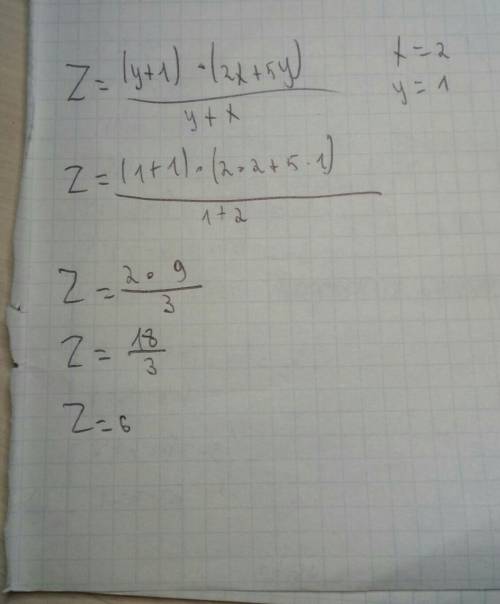 Z = (y+1) • (2x+5y) / y+x
x = 2
y = 1
Z = (1+1) • (2•2+5•1) / 1+2
Z = 2•9 / 3
Z = 18/3
Z = 6